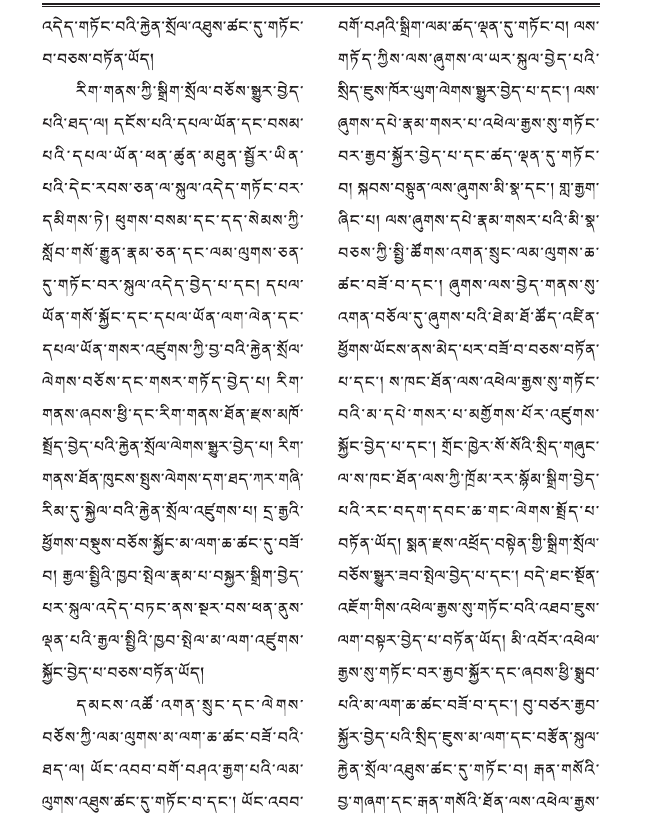 འདེད་གཏོང་བའི་རྐྱེན་སྲོལ་འཐུས་ཚང་དུ་གཏོང་
བ་བཅས་བཏོན་ཡོད།
རིག་གནས་ཀྱི་སྒྲིག་སྲོལ་བཅོས་སྒྱུར་བྱེད་
པའི་ཐད་ལ། དངོས་པའི་དཔལ་ཡོན་དང་བསམ་
པའི་དཔལ་ཡོན་ཕན་ཚུན་མཐུན་སྦྱོར་ཡིན་
པའི་དེང་རབས་ཅན་ལ་སྐུལ་འདེད་གཏོང་བར་
དམིགས་ཏེ། ཕུགས་བསམ་དང་དད་སེམས་ཀྱི་
སློབ་གསོ་རྒྱུན་རྣམ་ཅན་དང་ལམ་ལུགས་ཅན་
དུ་གཏོང་བར་སྐུལ་འདེད་བྱེད་པ་དང༌། དཔལ་
ཡོན་གསོ་སྐྱོང་དང་དཔལ་ཡོན་ལག་ལེན་དང་
དཔལ་ཡོན་གསར་འཛུགས་ཀྱི་བྱ་བའི་རྐྱེན་སྲོལ་
ལེགས་བཅོས་དང་གསར་གཏོད་བྱེད་པ། རིག་
གནས་ཞབས་ཕྱི་དང་རིག་གནས་ཐོན་རྫས་མཁོ་
སྤྲོད་བྱེད་པའི་རྐྱེན་སྲོལ་ལེགས་སྒྱུར་བྱེད་པ། རིག་
གནས་ཐོན་ཁུངས་སྤུས་ལེགས་དག་ཐད་ཀར་གཞི་
རིམ་དུ་སྐྱེལ་བའི་རྐྱེན་སྲོལ་འཛུགས་པ། དྲ་རྒྱའི་
ཕྱོགས་བསྡུས་བཅོས་སྐྱོང་མ་ལག་ཆ་ཚང་དུ་བཟོ་
བ། རྒྱལ་སྤྱིའི་ཁྱབ་སྤེལ་རྣམ་པ་བསྐྱར་སྒྲིག་བྱེད་
པར་སྐུལ་འདེད་བཏང་ནས་སྔར་བས་ཕན་ནུས་
ལྡན་པའི་རྒྱལ་སྤྱིའི་ཁྱབ་སྤེལ་མ་ལག་འཛུགས་
སྐྱོང་བྱེད་པ་བཅས་བཏོན་ཡོད།
དམངས་འཚོ་འགན་སྲུང་དང་ལེགས་
བཅོས་ཀྱི་ལམ་ལུགས་མ་ལག་ཆ་ཚང་བཟོ་བའི་
ཐད་ལ། ཡོང་འབབ་བགོ་བཤའ་རྒྱག་པའི་ལམ་
ལུགས་འཐུས་ཚང་དུ་གཏོང་བ་དང༌། ཡོང་འབབ་
བགོ་བཤའི་སྒྲིག་ལམ་ཚད་ལྡན་དུ་གཏོང་བ། ལས་
གཏོད་ཀྱིས་ལས་ཞུགས་ལ་ཡར་སྐུལ་བྱེད་པའི་
སྲིད་ཇུས་ཁོར་ཡུག་ལེགས་སྒྱུར་བྱེད་པ་དང༌། ལས་
ཞུགས་དཔེ་རྣམ་གསར་པ་འཕེལ་རྒྱས་སུ་གཏོང་
བར་རྒྱབ་སྐྱོར་བྱེད་པ་དང་ཚད་ལྡན་དུ་གཏོང་
བ། སྐབས་བསྟུན་ལས་ཞུགས་མི་སྣ་དང༌། གླ་རྒྱག་
ཞིང་པ། ལས་ཞུགས་དཔེ་རྣམ་གསར་པའི་མི་སྣ་
བཅས་ཀྱི་སྤྱི་ཚོགས་འགན་སྲུང་ལམ་ལུགས་ཆ་
ཚང་བཟོ་བ་དང༌། ཞུགས་ལས་བྱེད་གནས་སུ་
འགན་བཅོལ་དུ་ཞུགས་པའི་ཐེམ་ཐོ་ཚོད་འཛིན་
ཕྱོགས་ཡོངས་ནས་མེད་པར་བཟོ་བ་བཅས་བཏོན་
པ་དང༌། ས་ཁང་ཐོན་ལས་འཕེལ་རྒྱས་སུ་གཏོང་
བའི་མ་དཔེ་གསར་པ་མགྱོགས་པོར་འཛུགས་
སྐྱོང་བྱེད་པ་དང༌། གྲོང་ཁྱེར་སོ་སོའི་སྲིད་གཞུང་
ལ་ས་ཁང་ཐོན་ལས་ཀྱི་ཁྲོམ་རར་སྙོམ་སྒྲིག་བྱེད་
པའི་རང་བདག་དབང་ཆ་གང་ལེགས་སྤྲོད་པ་
བཏོན་ཡོད། སྨན་རྫས་འཕྲོད་བསྟེན་གྱི་སྒྲིག་སྲོལ་
བཅོས་སྒྱུར་ཟབ་སྤེལ་བྱེད་པ་དང༌། བདེ་ཐང་སྔོན་
འཇོག་གིས་འཕེལ་རྒྱས་སུ་གཏོང་བའི་འཐབ་ཇུས་
ལག་བསྟར་བྱེད་པ་བཏོན་ཡོད། མི་འབོར་འཕེལ་
རྒྱས་སུ་གཏོང་བར་རྒྱབ་སྐྱོར་དང་ཞབས་ཕྱི་སྒྲུབ་
པའི་མ་ལག་ཆ་ཚང་བཟོ་བ་དང༌། བུ་བཙར་རྒྱབ་
སྐྱོར་བྱེད་པའི་སྲིད་ཇུས་མ་ལག་དང་བརྩོན་སྐུལ་
རྐྱེན་སྲོལ་འཐུས་ཚང་དུ་གཏོང་བ། རྒན་གསོའི་
བྱ་གཞག་དང་རྒན་གསོའི་ཐོན་ལས་འཕེལ་རྒྱས་